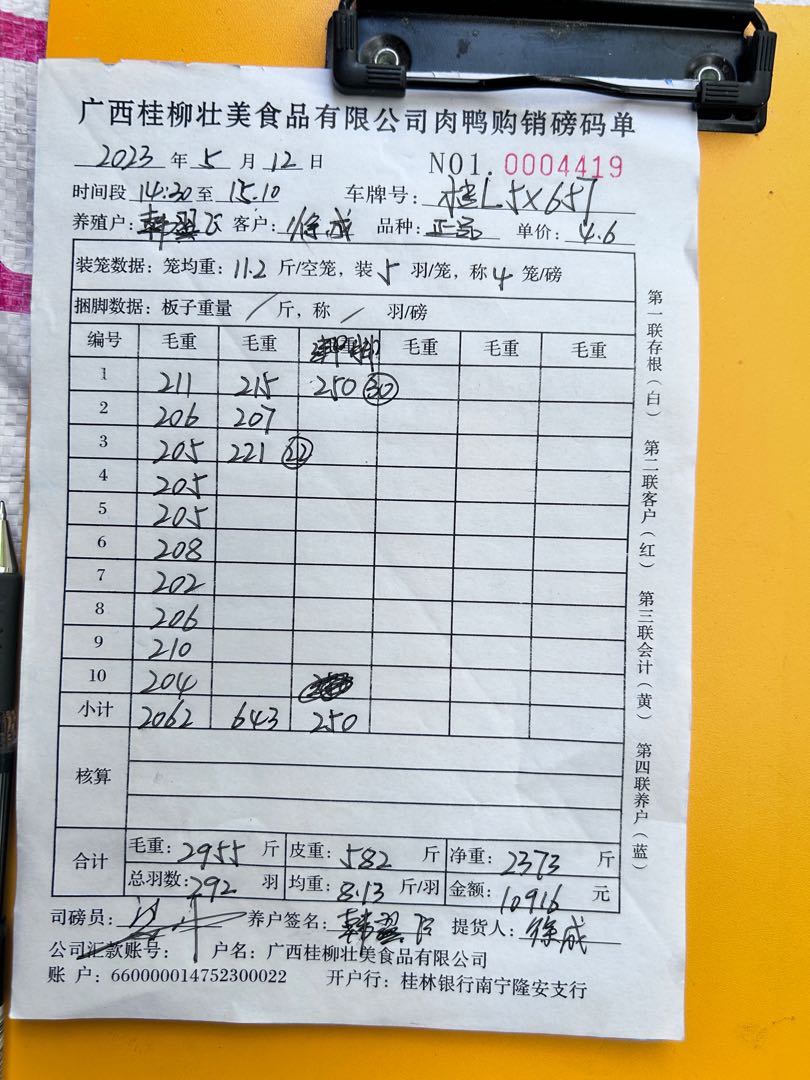 广西桂柳壮美食品有限公司肉鸭购销磅码单
2023 年 5 月 12 日 NO1. 0004419
时间段 14:30 至 15:10 车牌号: 桂L5X657
养殖户: 韩翌飞 客户: 徐成 品种: 正品 单价: 4.6
装笼数据: 笼均重: 11.2 斤/空笼, 装 5 羽/笼, 称 4 笼/磅
捆脚数据: 板子重量 / 斤, 称 / 羽/磅
编号 毛重 毛重 毛重 毛重 毛重
1 211 215 250 30
2 206 207
3 205 221 22
4 205
5 205
6 208
7 202
8 206
9 210
10 204
小计 2062 643 250
核算
合计 毛重: 2955 斤 皮重: 582 斤 净重: 2373 斤
总羽数: 292 羽 均重: 8.13 斤/羽 金额: 10916 元
司磅员: 养户签名: 韩翌飞 提货人: 徐成
公司汇款账号: 户名: 广西桂柳壮美食品有限公司
账 户: 660000014752300022 开户行: 桂林银行南宁隆安支行
第一联存根(白) 第二联客户(红) 第三联会计(黄) 第四联养户(蓝)